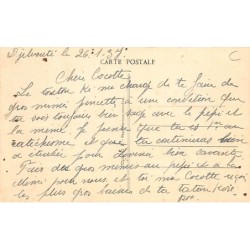 le 26.1.37.
C
CARTE POSTALE
Chère Cocotte
Le tonton me charge de te faire de
gros mimi à une condition que
tu sois toujours bien sage avec le pépé et
la mémé, je pense que tu es 1er au
catéchisme et que tu continueras bien
a étudier pour devenir bien savante
Fais des gros mimis au pépé et à la
mémé pour nous et toi ma Cocotte reçois
les plus gros baisers de ta tatan